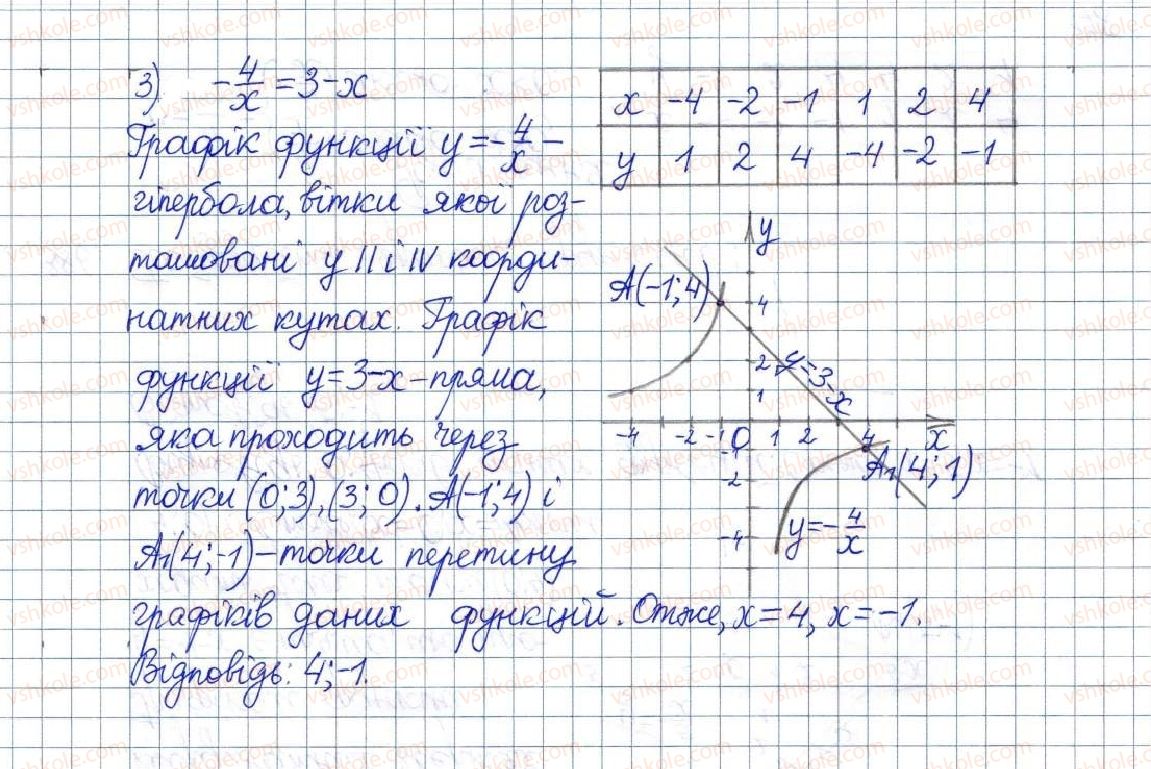 3) -4/x = 3-x
Графік функції y = -4/x –
гіпербола, вітки якої роз-
ташовані у II і IV коорди-
натних кутах. Графік
функції y=3-x – пряма,
яка проходить через
точки (0;3), (3;0). A(-1;4) і
A₁(4;-1) – точки перетину
графіків даних функцій. Отже, x=4, x=-1.
Відповідь: 4;-1.
x -4 -2 -1 1 2 4
y 1 2 4 -4 -2 -1
y
A(-1;4)
4
2
1
y=3-x
-4 -2 -1 0 1 2 4 x
-1
-2
-4
A₁(4;1)
y=-4/x
vshkole.com